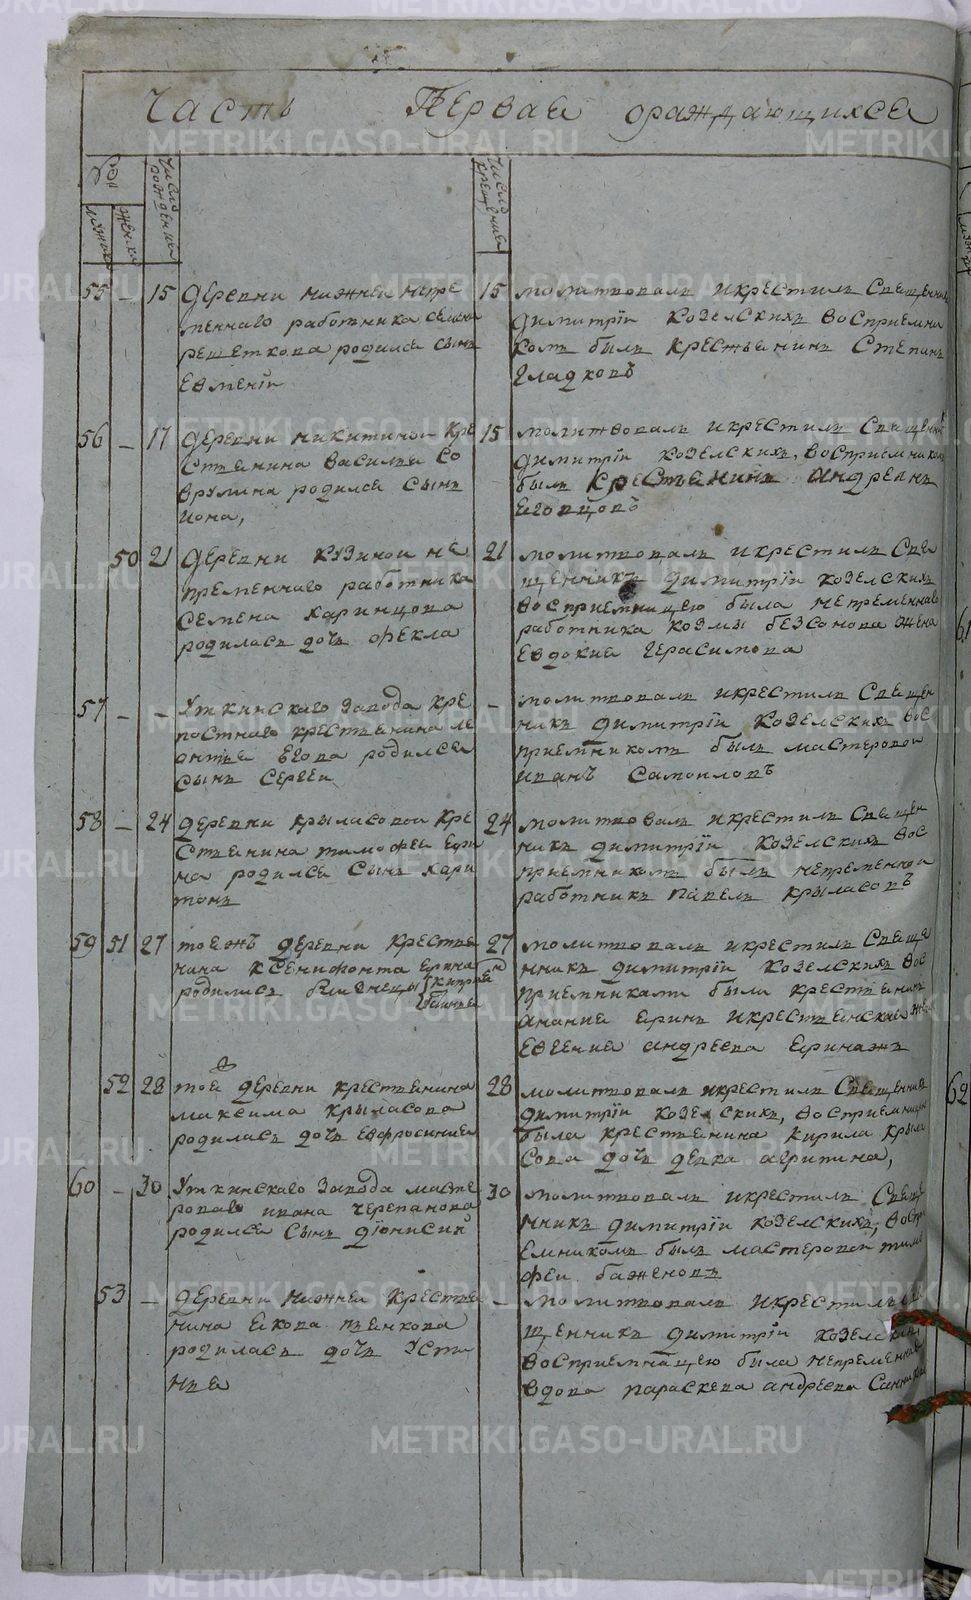 Часть Первая ораждающихся
№
мужска
женска
Число рождения
Число крещения
55 – 15 деревни нижней непре
менного работника семена
решеткова родился сынъ
евмений
15 молитвовалъ икрестилъ Священникъ
Димитрiи Козелскихъ восприемни
комъ былъ крестьянинъ Степанъ
Гладковъ
56 – 17 деревни никитиной кре
стьянина василья со
врулина родился сынъ
иона,
15 молитвовалъ икрестилъ Священни
димитрiи козелскихъ, восприемником
былъ крестьянинъ андреянъ
50 21 деревни кузиной не
пременнаго работника
семена каринцова
родиласъ дочь фекла
21 молитвовалъ икрестилъ Свя
щенникъ димитрiи козелскихъ
восприемницею была непременнаго
работника козмы безсонова жена
Евдокия герасимова
57 – – Уткинскаго завода кре
постнаго крестьянина ле
онтья Егова родился
сынъ Сергеи
– молитвовалъ икрестилъ Священ
никъ димитрiи козелскихъ вос
приемникомъ былъ мастеровои
иванъ Самоиловъ
58 – 24 деревни крыласовои кре
стьянина тимофея ери
на родился сынъ хари
тонъ
24 молитвовалъ икрестилъ Священ
никъ димитрiи козелскихъ вос
приемникомъ былъ непременнои
работникъ павелъ крыласовъ
59 51 27 тоежъ деревни крестья
нина ксенифонта ерина
родились близнецы
27 молитвовалъ икрестилъ Свяще
нникъ димитрiи козелскихъ вос
приемниками были крестьянинъ
анания еринъ икрестьянская же
Евгения андреева Еринажъ
52 28 тоя деревни крестьянина
максима крыласова
родиласъ дочь евфросиния
28 молитвовалъ икрестилъ Священникъ
димитрiи козелскихъ, восприемницею
была крестьянина кирила крыла
сова дочь девка агрипина,
60 – 30 Уткинскаго завода масте
роваго ивана черепанова
родился сынъ дiонисий
30 молитвовалъ икрестилъ Свяще
нникъ димитрiи козелскихъ, воспри
емникомъ былъ мастеровои тимо
феи баженовъ
53 – деревни нижнеи крестья
нина Якова пенкова
родиласъ дочь усти
нья
– молитвовалъ икрестилъ
щенникъ димитрiи козелскихъ
восприемницею была непременная
вдова параскева андреева
61
62
METRIKI.GASO-URAL.RU